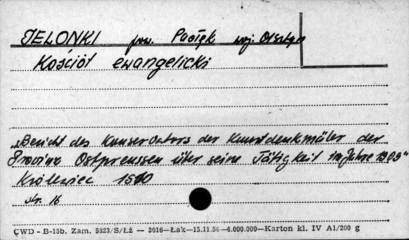 JELONKI pow. Pasłęk woj. Olsztyn
Kościół ewangelicki
„Bericht des Konservators der Kunstdenkmäler der
Provinz Ostpreussen über seine Tätigkeit im Jahre 1909"
Królewiec
str. 16
CWD - B-15b. Zam. 5323/S/Łż — 2016—Łak—15.11.56—6.000.000—Karton kl. IV A1/200 g